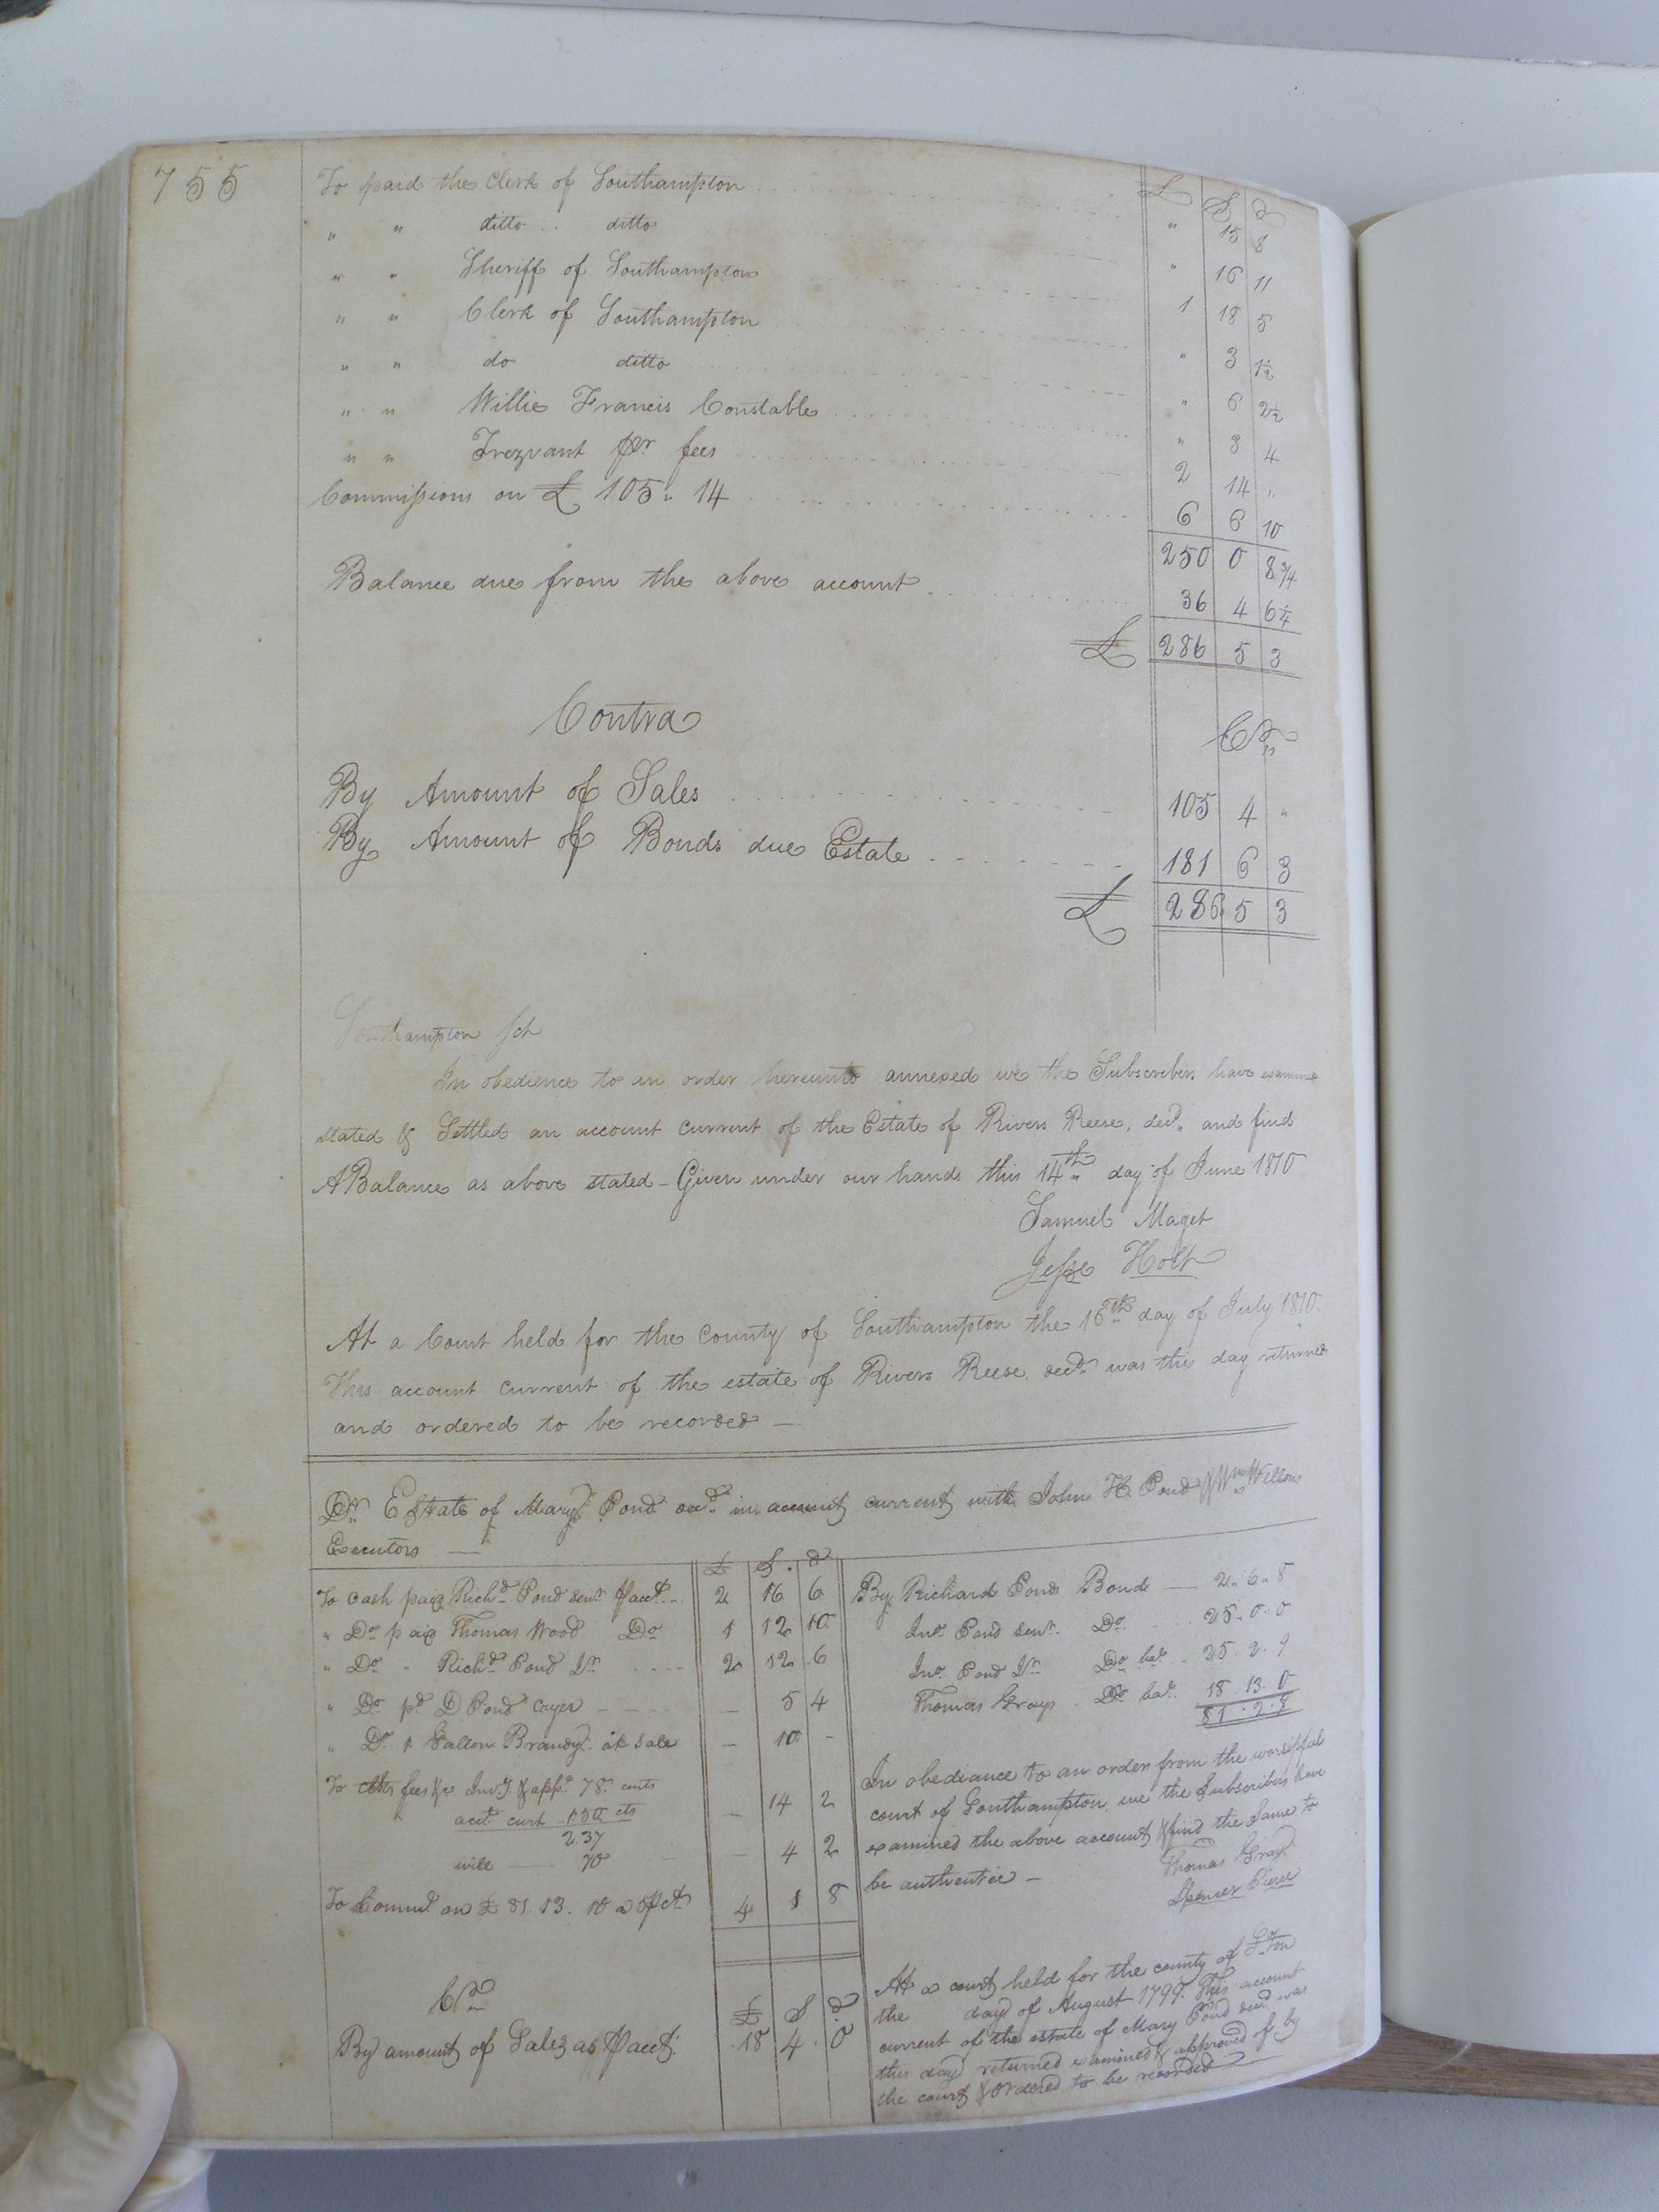 755
£ S d
To paid the Clerk of Southampton . . . " 15 8
" " ditto . . ditto . . . " 16 11
" " Sheriff of Southampton . . . 1 18 5
" " Clerk of Southampton . . . " 3 1½
" " do ditto . . . " 6 2½
" " Willie Francis Constable . . . " 3 4
" " Trezvant pr fees . . . 2 14 "
Commissions on £ 105 " 14 . . . 6 6 10
250 0 8¾
Balance due from the above account . . . 36 4 6¼
£ 286 5 3
Contra Cr
By Amount of Sales . . . 105 4 "
By Amount of Bonds due Estate . . . 181 6 3
£ 286 5 3
Southampton Sct
In obedience to an order hereunto annexed we the Subscribers have examine
stated & Settled an account current of the Estate of Rivers Reese, decd. and find
A Balance as above stated – Given under our hands this 14th day of June 1810
Samuel Maget
Jesse Holt
At a Court held for the County of Southampton the 16th day of July 1810.
This account current of the estate of Rivers Reese decd. was this day returned
and ordered to be recorded —
Dr Estate of Mary Pond decd. in account current with John H. Pond & Wm Wellons
Executors —
£ S. d
To Cash paid Richd. Pond senr. pr acct. . . 2 16 6
" Do paid Thomas Wood Do 1 12 10
" Do - Richd. Pond Jr . . . . 2 12 . 6
" Do pd D Pond — — — 5 4
" Do 1 Gallon Brandy at Sale — 10 -
To fees pr Invy. & appt. 78 cents
acct. curt 1.50 cts — 14 2
2.37
will — 70 — 4 2
To Commn. on £ 81. 13. 10 a 5 pr ct. 4 1 8
Cr £ S d
By amount of Sales as pr acct. 18 4 . 0
By Richard Ponds Bond — 2 . 6 . 8
Jno. Pond senr. Do . . . 25 . 0 . 0
Jno. Pond Jr Do bal. . 25 . 2 . 9
Thomas Grays . Do bal. 18 . 13 . 0
81 . 2 . 5
In obediance to an order from the worsipful
court of Southampton, we the Subscribers have
examined the above account & find the Same to
be authentic —
Thomas Gray
Spencer Pierce
At a court held for the county of So.ton
the day of August 1799. This account
current of the estate of Mary Pond decd. was
this day returned examined & approved of by
the court & ordered to be recorded